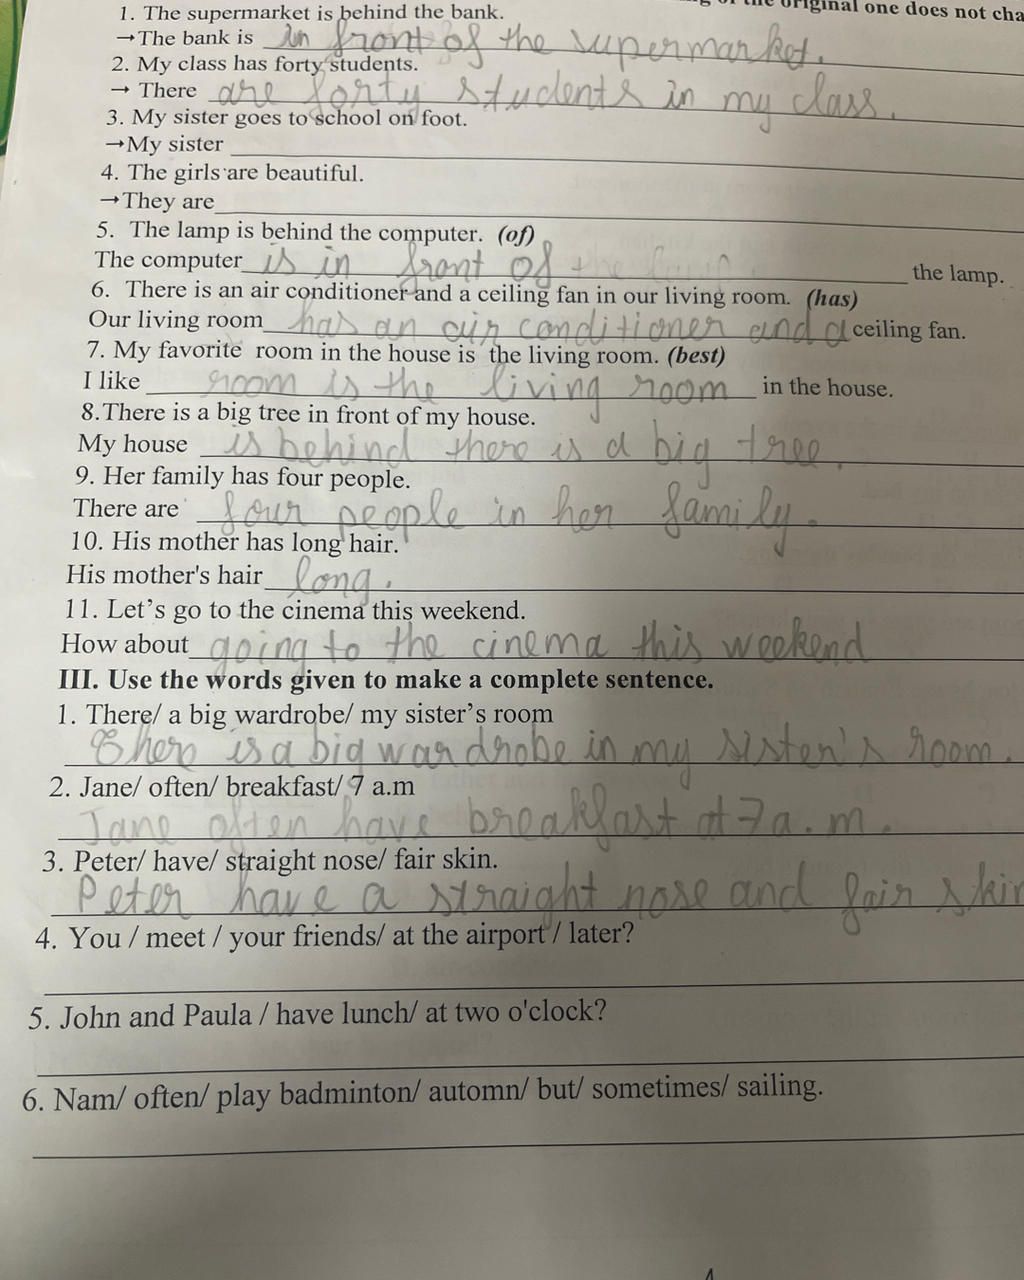 of the original one does not cha
1. The supermarket is behind the bank.
→The bank is in front of the supermarket.
2. My class has forty students.
→ There are forty students in my class.
3. My sister goes to school on foot.
→My sister
4. The girls are beautiful.
→They are
5. The lamp is behind the computer. (of)
The computer is in front of the lamp.
6. There is an air conditioner and a ceiling fan in our living room. (has)
Our living room has an air conditioner and a ceiling fan.
7. My favorite room in the house is the living room. (best)
I like room is the living room in the house.
8.There is a big tree in front of my house.
My house is behind there is a big tree.
9. Her family has four people.
There are four people in her family.
10. His mother has long hair.
His mother's hair long.
11. Let's go to the cinema this weekend.
How about going to the cinema this weekend
III. Use the words given to make a complete sentence.
1. There/ a big wardrobe/ my sister's room
There is a big wardrobe in my sister's room.
2. Jane/ often/ breakfast/ 7 a.m
Jane often have breakfast at 7 a.m.
3. Peter/ have/ straight nose/ fair skin.
Peter have a straight nose and fair skin
4. You / meet / your friends/ at the airport / later?
5. John and Paula / have lunch/ at two o'clock?
6. Nam/ often/ play badminton/ automn/ but/ sometimes/ sailing.